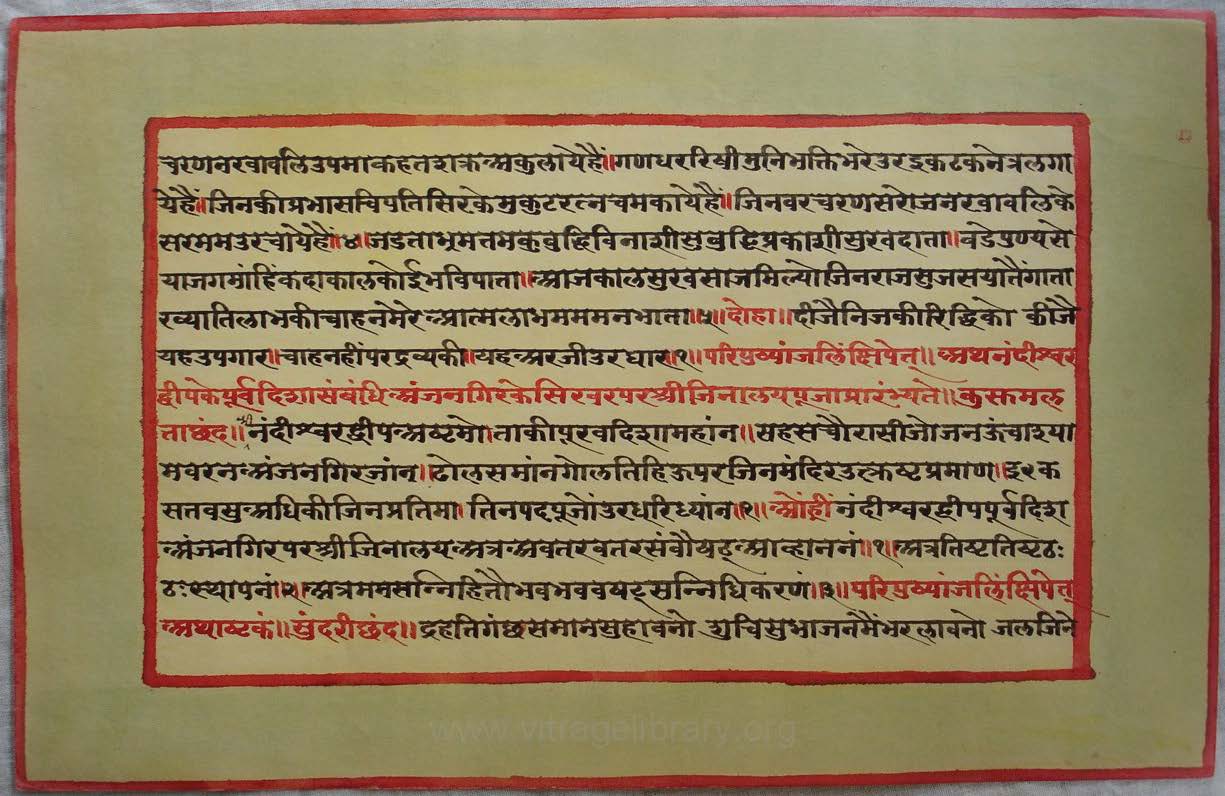 चरणनखावलिउपमाकहतशक्रअकुलायेहैं॥गणधररिषीमुनिभक्तिभरेउरइकटकनेत्रलगा
येहैं॥जिनकीप्रभासचिपतिसिरकेमुकुटरत्नचमकायेहैं॥जिनवरचरणसरोजनखावलिके
सरममउरचायेहैं॥४॥जडताभ्रमतमकुबुद्धिविनाशीसुबुद्धिप्रकाशीसुखदाता॥वडेपुण्यसे
याजगमांहिंकदाकालकोईभविपाता॥आजकालसुखसाजमिल्योजिनराजसुजसयातैंगाता
ख्यातिलाभकीचाहनमेरेआत्मलोभमममनभाता॥५॥दोहा॥दीजैनिजकीरिद्धिको कीजै
यहउपगार॥चाहनहींपरद्रव्यकी॥यहअरजीउरधार॥१॥परिपुष्पांजलिंक्षिपेत्॥अथनंदीश्वर
द्वीपकेपूर्वदिशासंबंधिअंजनगिरकेसिखरपरश्रीजिनालयपूजाप्रारंभ्यते॥कुसमल
ताछंद॥नंदीश्वरद्वीपअष्टमो।ताकीपूरवदिशामहांन॥सहसचौरासीजोजनऊंचाश्या
मवरनअंजनगिरजांन्॥ढोलसमांनगोलतिहिऊपरजिनमंदिरउत्कृष्टप्रमाण॥इकक
सतवसुअधिकीजिनप्रतिमा। तिनपदपूजोंउरधरिध्यांन॥१॥ओंह्रीं नंदीश्वरद्वीपपूर्वदिश
अंजनगिरपरश्रीजिनालयअत्रअवतरवतरसंवौषट्आव्हाननं॥१॥अत्रतिष्टतिष्टठः
ठःस्थापनं॥२॥अत्रममसन्निहितौभवभववषट्सन्निधिकरणं॥३॥परिपुष्पांजलिंक्षिपेत्
अथाष्टकं॥सुंदरीछंद॥द्रहतिगंछसमानसुहावनो शुचिसुभाजनमैंभरलावनो जलजिने
www.vitragelibrary.org